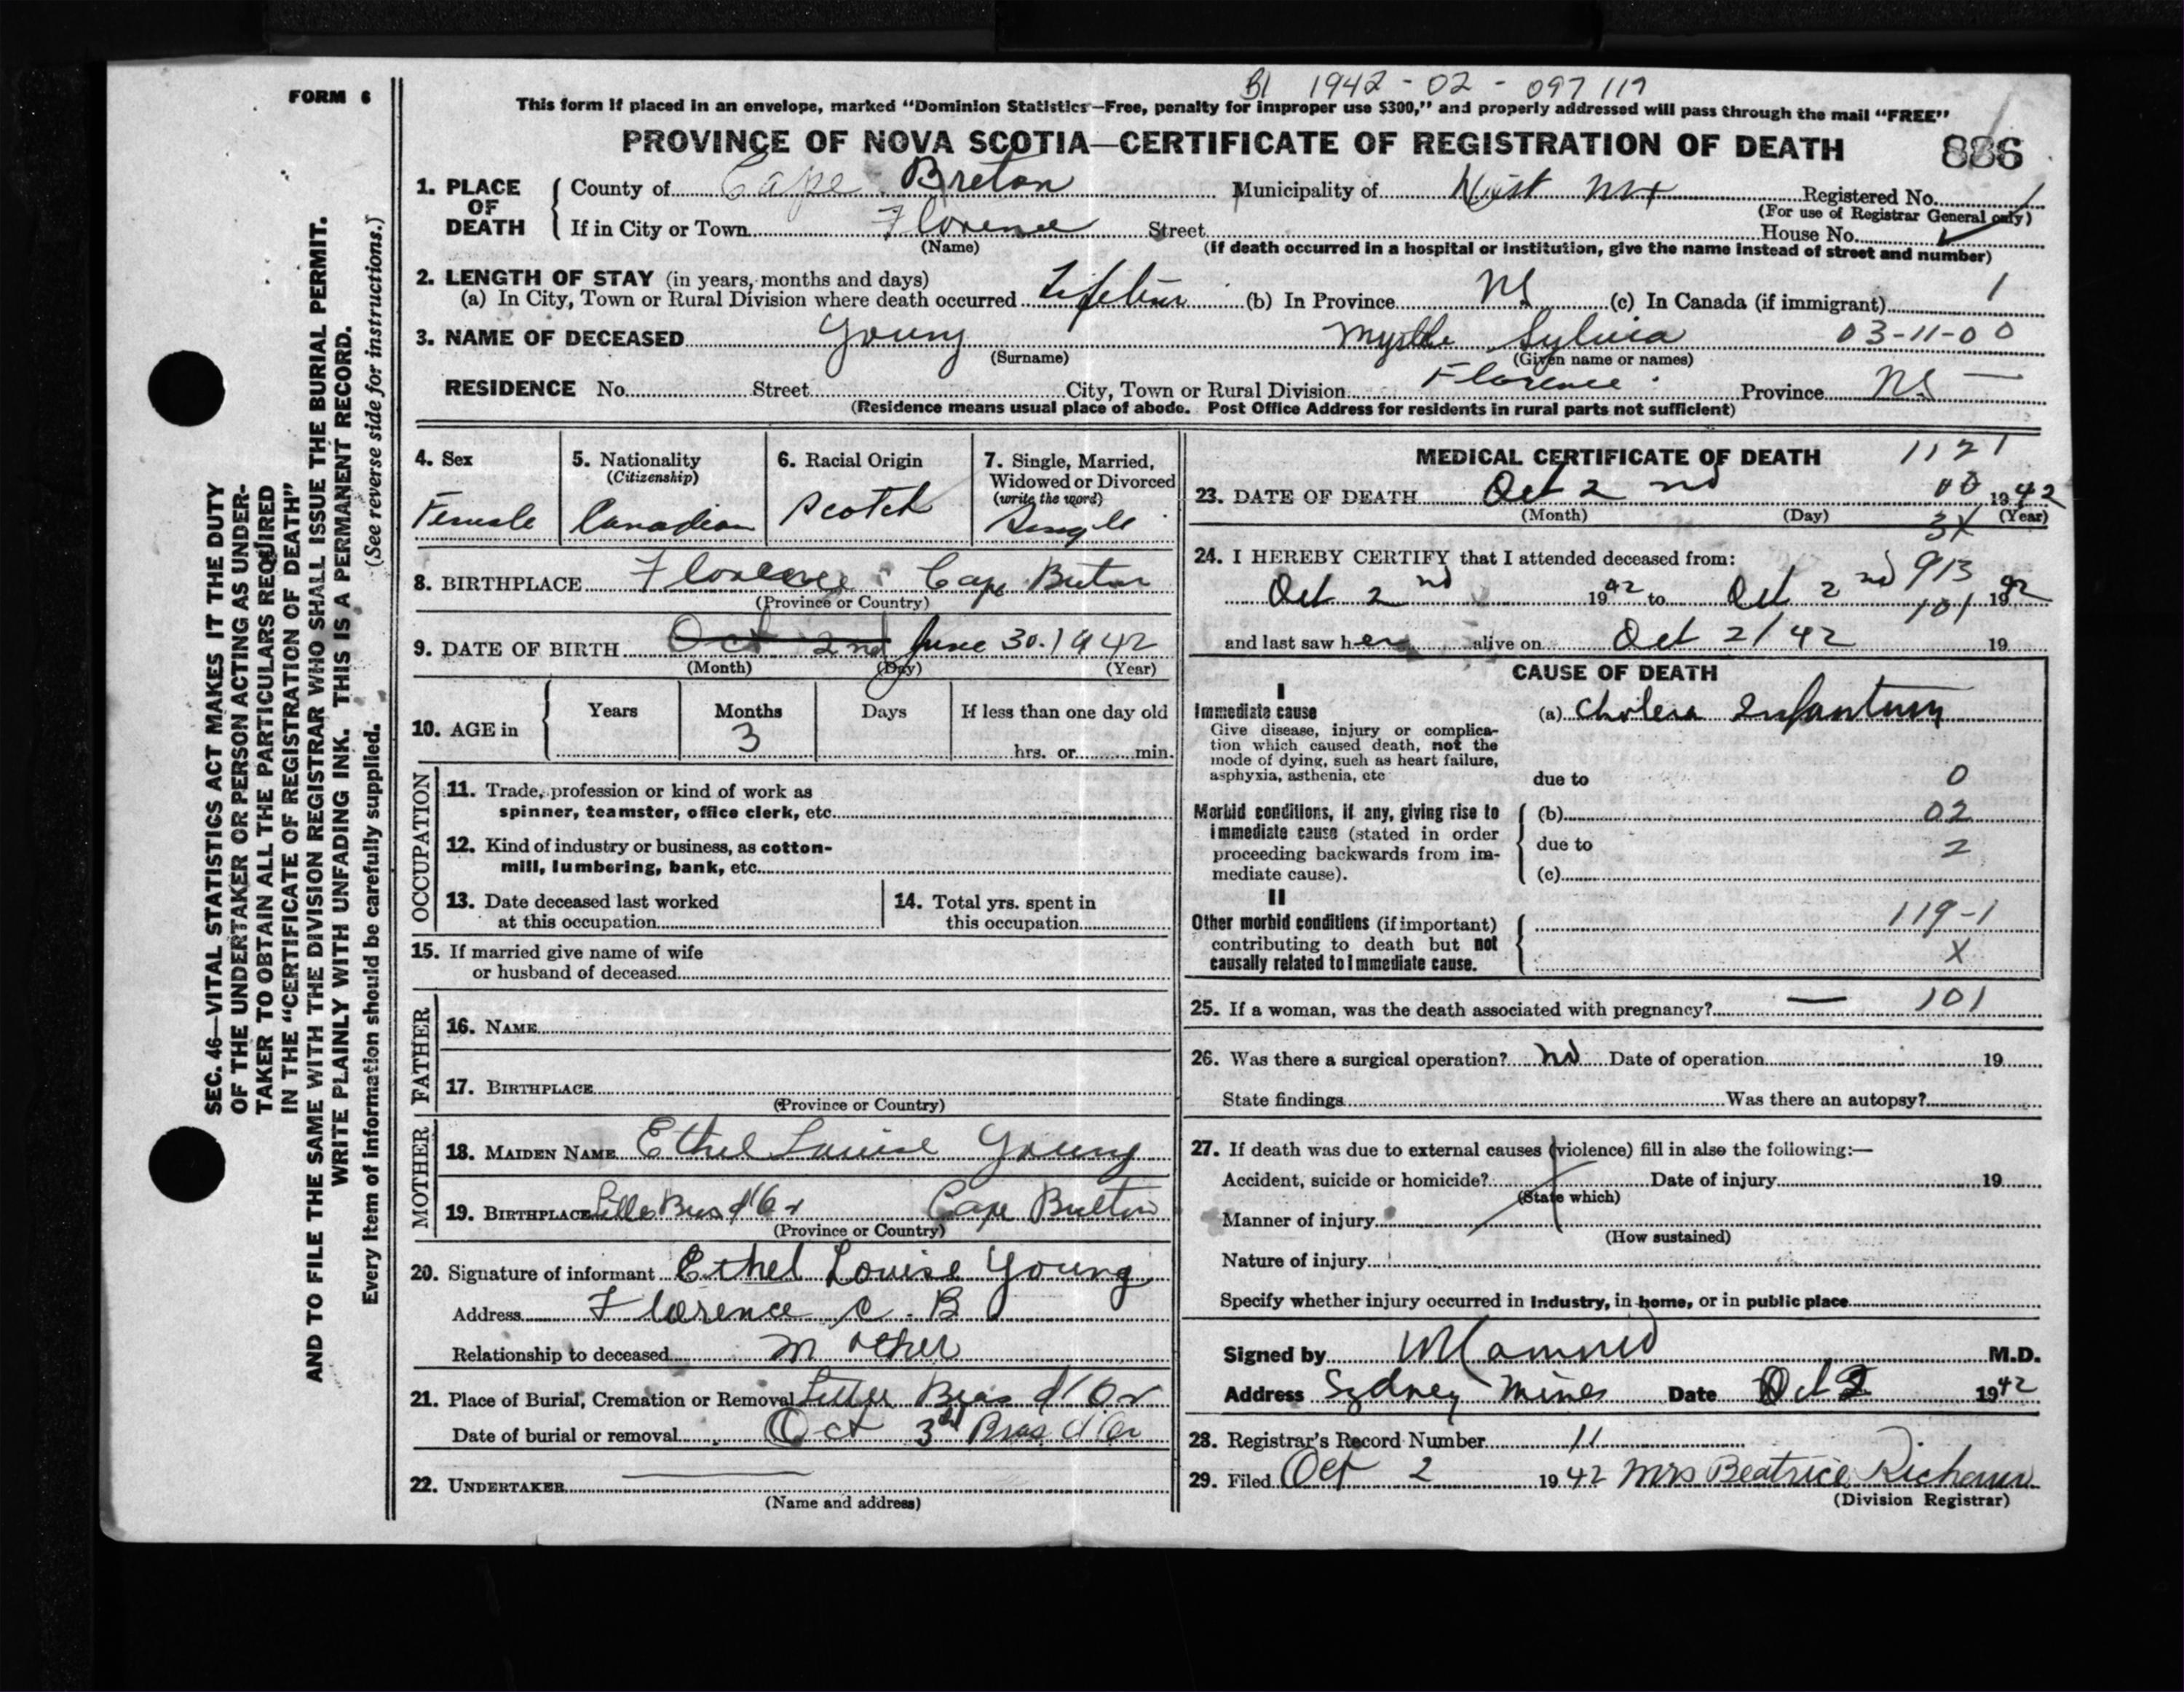 FORM 6
B1 1942-02-097119
This form if placed in an envelope, marked "Dominion Statistics—Free, penalty for improper use $300," and properly addressed will pass through the mail "FREE"
PROVINCE OF NOVA SCOTIA—CERTIFICATE OF REGISTRATION OF DEATH
886
1. PLACE OF DEATH County of Cape Breton Municipality of Registered No. 1
(For use of Registrar General only)
If in City or Town Florence Street House No.
(Name) (If death occurred in a hospital or institution, give the name instead of street and number)
2. LENGTH OF STAY (in years, months and days)
(a) In City, Town or Rural Division where death occurred Lifetime (b) In Province NS (c) In Canada (if immigrant) 1
3. NAME OF DECEASED Young Myrtle Sylvia 03-11-00
(Surname) (Given name or names)
RESIDENCE No. Street City, Town or Rural Division Florence Province NS
(Residence means usual place of abode. Post Office Address for residents in rural parts not sufficient)
4. Sex 5. Nationality 6. Racial Origin 7. Single, Married,
(Citizenship) Widowed or Divorced
(write the word)
Female Canadian Scotch Single
8. BIRTHPLACE Florence Cape Breton
(Province or Country)
9. DATE OF BIRTH Oct 2nd June 30. 1942
(Month) (Day) (Year)
Years Months Days If less than one day old
10. AGE in 3 hrs. or min.
OCCUPATION
11. Trade, profession or kind of work as
spinner, teamster, office clerk, etc.
12. Kind of industry or business, as cotton-
mill, lumbering, bank, etc.
13. Date deceased last worked 14. Total yrs. spent in
at this occupation this occupation
15. If married give name of wife
or husband of deceased
FATHER
16. NAME
17. BIRTHPLACE
(Province or Country)
MOTHER
18. MAIDEN NAME Ethel Louise Young
19. BIRTHPLACE Bras d'Or Cape Breton
(Province or Country)
20. Signature of informant Ethel Louise Young
Address Florence C. B
Relationship to deceased Mother
21. Place of Burial, Cremation or Removal Little Bras d'Or
Date of burial or removal Oct 3rd Bras d'Or
22. UNDERTAKER
(Name and address)
MEDICAL CERTIFICATE OF DEATH 1121
23. DATE OF DEATH Oct 2nd 00 1942
(Month) (Day) (Year)
3X
24. I HEREBY CERTIFY that I attended deceased from:
913
Oct 2nd 1942 to Oct 2nd 1942
101
and last saw her alive on Oct 2/42 19
CAUSE OF DEATH
I
Immediate cause (a) Cholera Infantum
Give disease, injury or complica-
tion which caused death, not the
mode of dying, such as heart failure,
asphyxia, asthenia, etc due to 0
Morbid conditions, if any, giving rise to (b) 02
immediate cause (stated in order
proceeding backwards from im- due to 2
mediate cause). (c)
II
Other morbid conditions (if important) 119-1
contributing to death but not
causally related to immediate cause. X
25. If a woman, was the death associated with pregnancy? — 101
26. Was there a surgical operation? no Date of operation 19
State findings Was there an autopsy?
27. If death was due to external causes (violence) fill in also the following:—
Accident, suicide or homicide? Date of injury 19
(State which)
Manner of injury
(How sustained)
Nature of injury
Specify whether injury occurred in Industry, in home, or in public place
Signed by M.D.
Address Sydney Mines Date Oct 2 1942
28. Registrar's Record Number 11
29. Filed Oct 2 1942 Mrs Beatrice
(Division Registrar)
SEC. 46—VITAL STATISTICS ACT MAKES IT THE DUTY
OF THE UNDERTAKER OR PERSON ACTING AS UNDER-
TAKER TO OBTAIN ALL THE PARTICULARS REQUIRED
IN THE "CERTIFICATE OF REGISTRATION OF DEATH"
AND TO FILE THE SAME WITH THE DIVISION REGISTRAR WHO SHALL ISSUE THE BURIAL PERMIT.
WRITE PLAINLY WITH UNFADING INK. THIS IS A PERMANENT RECORD.
Every item of information should be carefully supplied. (See reverse side for instructions.)